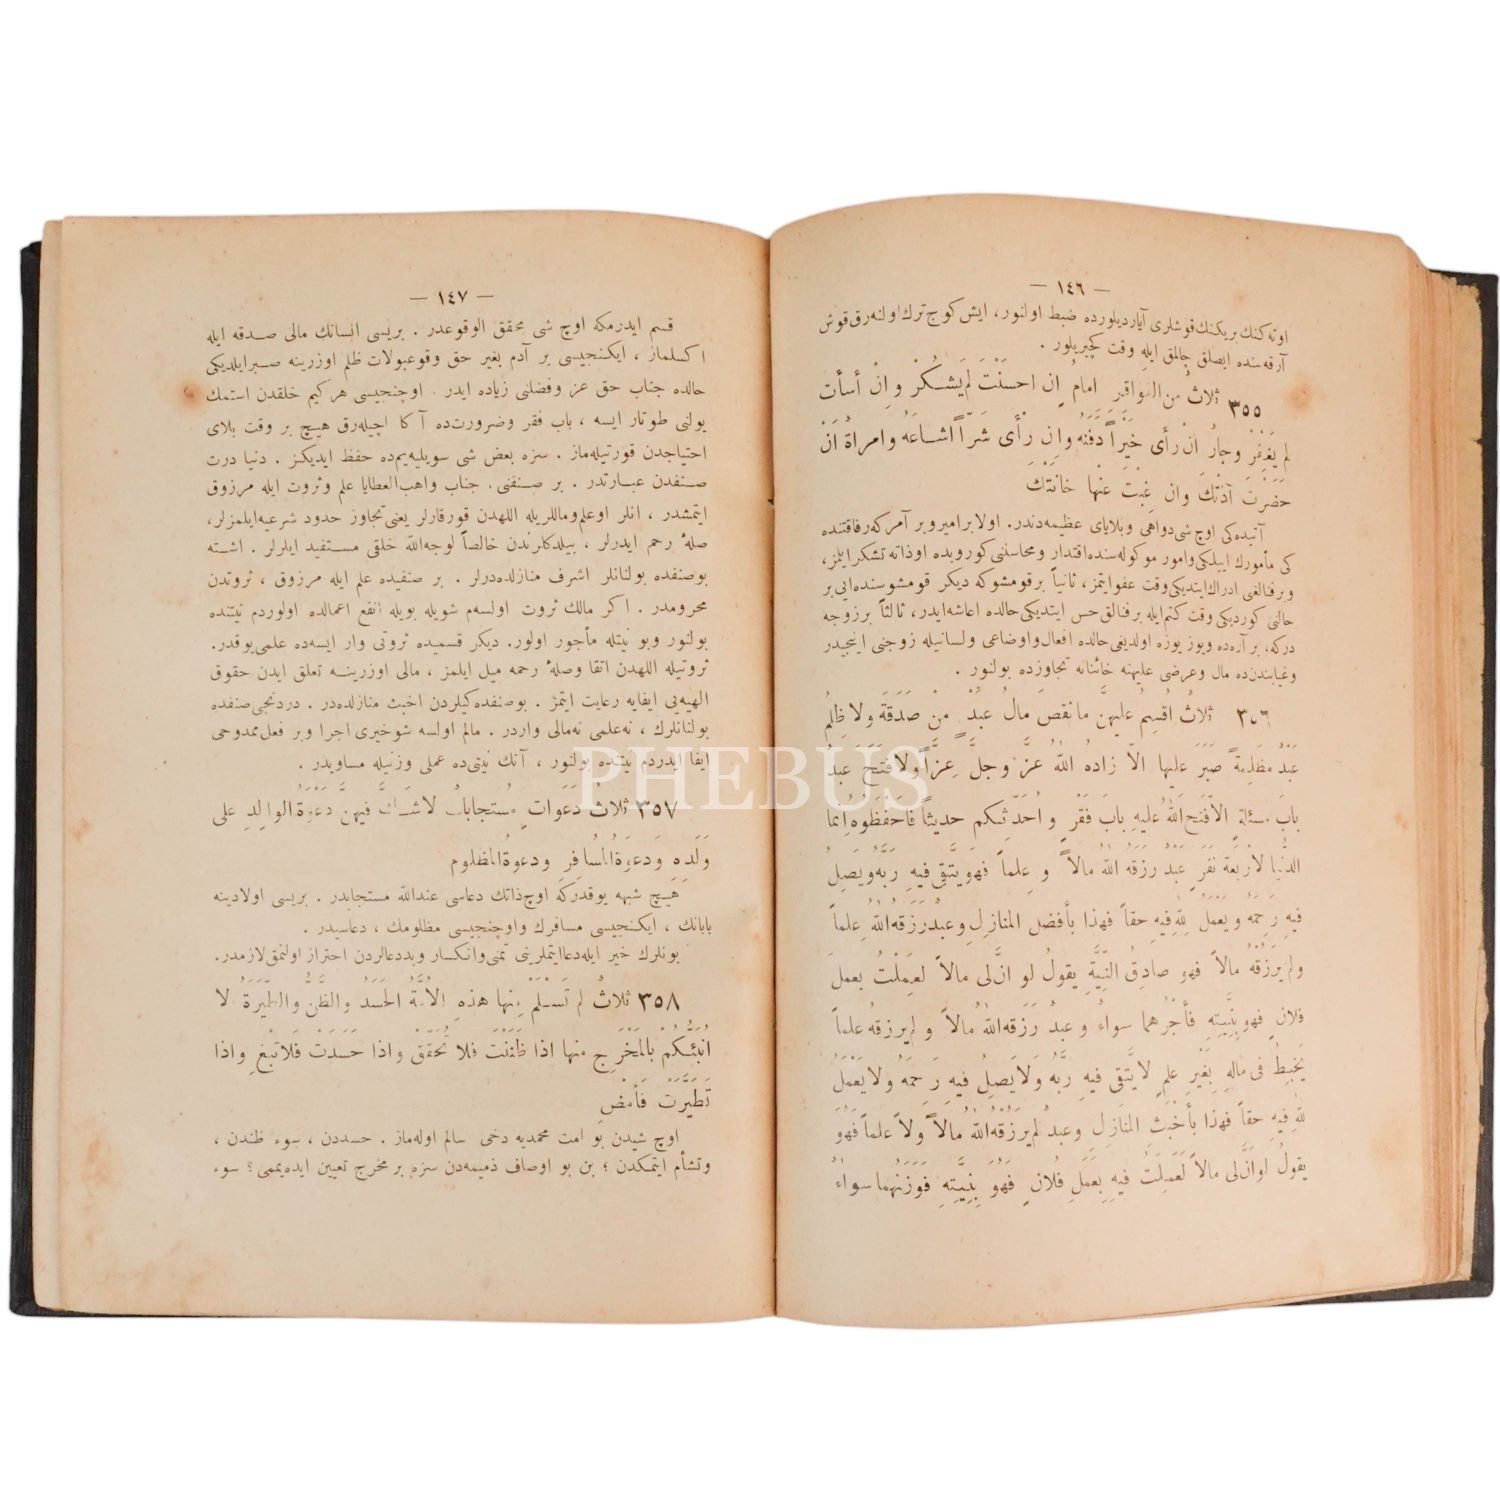 — ١٤٦ —
اوته كنك بريكنك قوشلرى آياردیلورده ضبط اولنور، ايش كوج ترك اولنه رق قوش
آرقه سنده ايصلق چالمق ايله وقت كچيريلور .
٣٥٥ ثلاثٌ من الفواقرِ امامٌ ان احسنْتَ لم يَشكُرْ وانْ أسأت
لم يَغفِرْ وجارٌ انْ رأى خَيْراً دَفَنَه وانِ رأى شَرّاً اشاعَهُ وامراةٌ انْ
حَضَرْتَ آذتْكَ وان غِبْتَ عنْها خانَتْكَ
آتيده كى اوچ شى دواهى وبلاياى عظيمه دندر. اولا بر امير وبر آمر كه رفاقتنده
كى مأمورك اييلكى وامور موكوله سنده اقتدار ومحاسنى كوروبده اوذاته تشكر ايلمز،
وبر فنالغى ادراك ايتديكى وقت عفو ايتمز، ثانياً بر قومشو كه ديكر قومشوسنده ايى بر
حالنى كورديكى وقت كتم ايله بر فنالق حس ايتديكى حالده اعاشه ايدر، ثالثاً بر زوجه
دركه، بر آرەده ويوز يوزه اولديغى حالده افعال واوضاعى ولسانيله زوجنى اينجيدر
وغيابندن ده مال وعرضى عليهنه خائنانه تجاوزده بولنور .
٣٥٦ ثلاثٌ اُقسِمُ عليهنَّ ما نقصَ مالُ عبدٍ منْ صَدَقَةٍ ولا ظلِمَ
عَبْدٌ مظلِمةً صَبَرَ عليها الاّ زادهُ اللهُ عزَّ وجلَّ عِزّاً ولا فتحَ عبدٌ
بابَ مسئلةٍ الاّ فتحَ اللهُ عليهِ بابَ فقْرٍ واُحَدّثكم حديثاً فاحْفظوه اِنّما
الدنْيا لاَرْبعةِ نفَرٍ عَبْدٌ رزَقهُ اللهُ مالاً وعِلماً فهوَ يتَّقى فيهِ رَبَّهُ ويَصِلُ
فيهِ رَحِمَهُ ويَعْمَلُ للهِ فيهِ حقاً فهذا بأفضل المنازلِ وعبدٌ رَزقهُ اللهُ علماً
ولم يرْزُقْهُ مالاً فهو صادِقُ النّيَّةِ يقولُ لو انَّ لى مالاً لعمِلْتُ بعملَ
فلانٍ فهو بِنِيَّتِهِ فأجْرُهما سواءٌ وعبدٌ رَزَقهُ اللهُ مالاً ولم يرزقهُ علماً
يَخبِطُ فى مالِهِ بِغَيْرِ علمٍ لا يتَّقى فيهِ ربَّهُ ولا يَصِلُ فيهِ رَحِمَهُ ولا يَعْمَلُ
للهِ فيهِ حقاً فهذا بأخْبَثِ المنَازلِ وعبدٌ لم يرْزُقْهُ اللهُ مالاً ولاَ علماً فهُوَ
يقولُ لو انَّ لى مالاً لَعَمِلتُ فيهِ بِعَمَلِ فلانٍ فَهُوَ بِنِيَّتِهِ فَوَزْرُهما سواءٌ
— ١٤٧ —
قسم ايدرمكه اوچ شى محقق الوقوعدر . بريسى انسانك مالى صدقه ايله
اكسلماز ، ايكنجيسى بر آدم بغير حق وقوعبولات ظلم اوزرينه صبر ايلديكى
حالده جناب حق عز وفضلنى زياده ايدر . اوچنجيسى هر كيم خلقدن استمك
يولنى طوتار ايسه ، باب فقر وضرورت ده آكا اچيله رق هيچ بر وقت بلاى
احتياجدن قورتيله ماز . سزه بعض شى سويليه يم ده حفظ ايديكز . دنيا درت
صنفدن عبارتدر . بر صنفنى . جناب واهب العطايا علم وثروت ايله مرزوق
ايتمشدر ، انلر او علم ومالريله اللهدن قورقارلر يعنى تجاوز حدود شرعيه ايلمزلر،
صلۀ رحم ايدرلر ، بيلدكلرندن خالصاً لوجه الله خلقى مستفيد ايلرلر . اشته
بو صنفده بولنانلر اشرف منازلده درلر . بر صنفيده علم ايله مرزوق ، ثروتدن
محرومدر . اكر مالك ثروت اولسه م شويله بويله انفع اعمالده اولوردم نيتنده
بولنور وبو نيتله مأجور اولور. ديكر قسميده ثروتى وار ايسه ده علمى يوقدر.
ثروتيله اللهدن اتقا وصلۀ رحمه ميل ايلمز ، مالى اوزرينه تعلق ايدن حقوق
الهيه يى ايفايه رعايت ايتمز . بو صنفده كيلردن اخبث منازلده در . دردنجى صنفده
بولنانلرك ، نه علمى نه مالى واردر . مالم اولسه شو خيرى اجرا وبر فعل ممدوحى
ايفا ايدردم نيتنده بولنور ، آنك نيتى ده عملى وزنيله مساويدر .
٣٥٧ ثلاثُ دَعَواتٍ مُستجاباتٌ لاشَكَّ فيهنَّ دَعْوَةُ الوالِدِ على
وَلَدِهِ وَدعوَةُ المُسافِرِ ودعوةُ المظلوم
هيچ شبهه يوقدركه اوچ ذاتك دعاسى عندالله مستجابدر . بريسى اولادينه
بابانك ، ايكنجيسى مسافرك واوچنجيسى مظلومك ، دعاسيدر .
بونلرك خير ايله دعا ايتملرينى تمنى وانكسار وبددعالردن احتراز اولنمق لازمدر.
٣٥٨ ثلاثٌ لم تَسْلَمْ مِنها هذهِ الاُمَّةُ الحَسَدُ والظَّنُّ والطِّيَرَةُ الا
اُنبّئكُمْ بالمَخْرَجِ منها اذا ظنَنْتَ فلا تُحَقِّقْ واذا حَسَدْتَ فلاتَبْغِ واذا
تَطَيَّرَتْ فَأمْضِ
اوچ شيدن بو امت محمديه دخى سالم اوله ماز . حسددن ، سوء ظندن ،
وتشأم ايتمكدن ؛ بن بو اوصاف ذميمه دن سزه بر مخرج تعيين ايده يممى ؟ سوء
PHEBUS